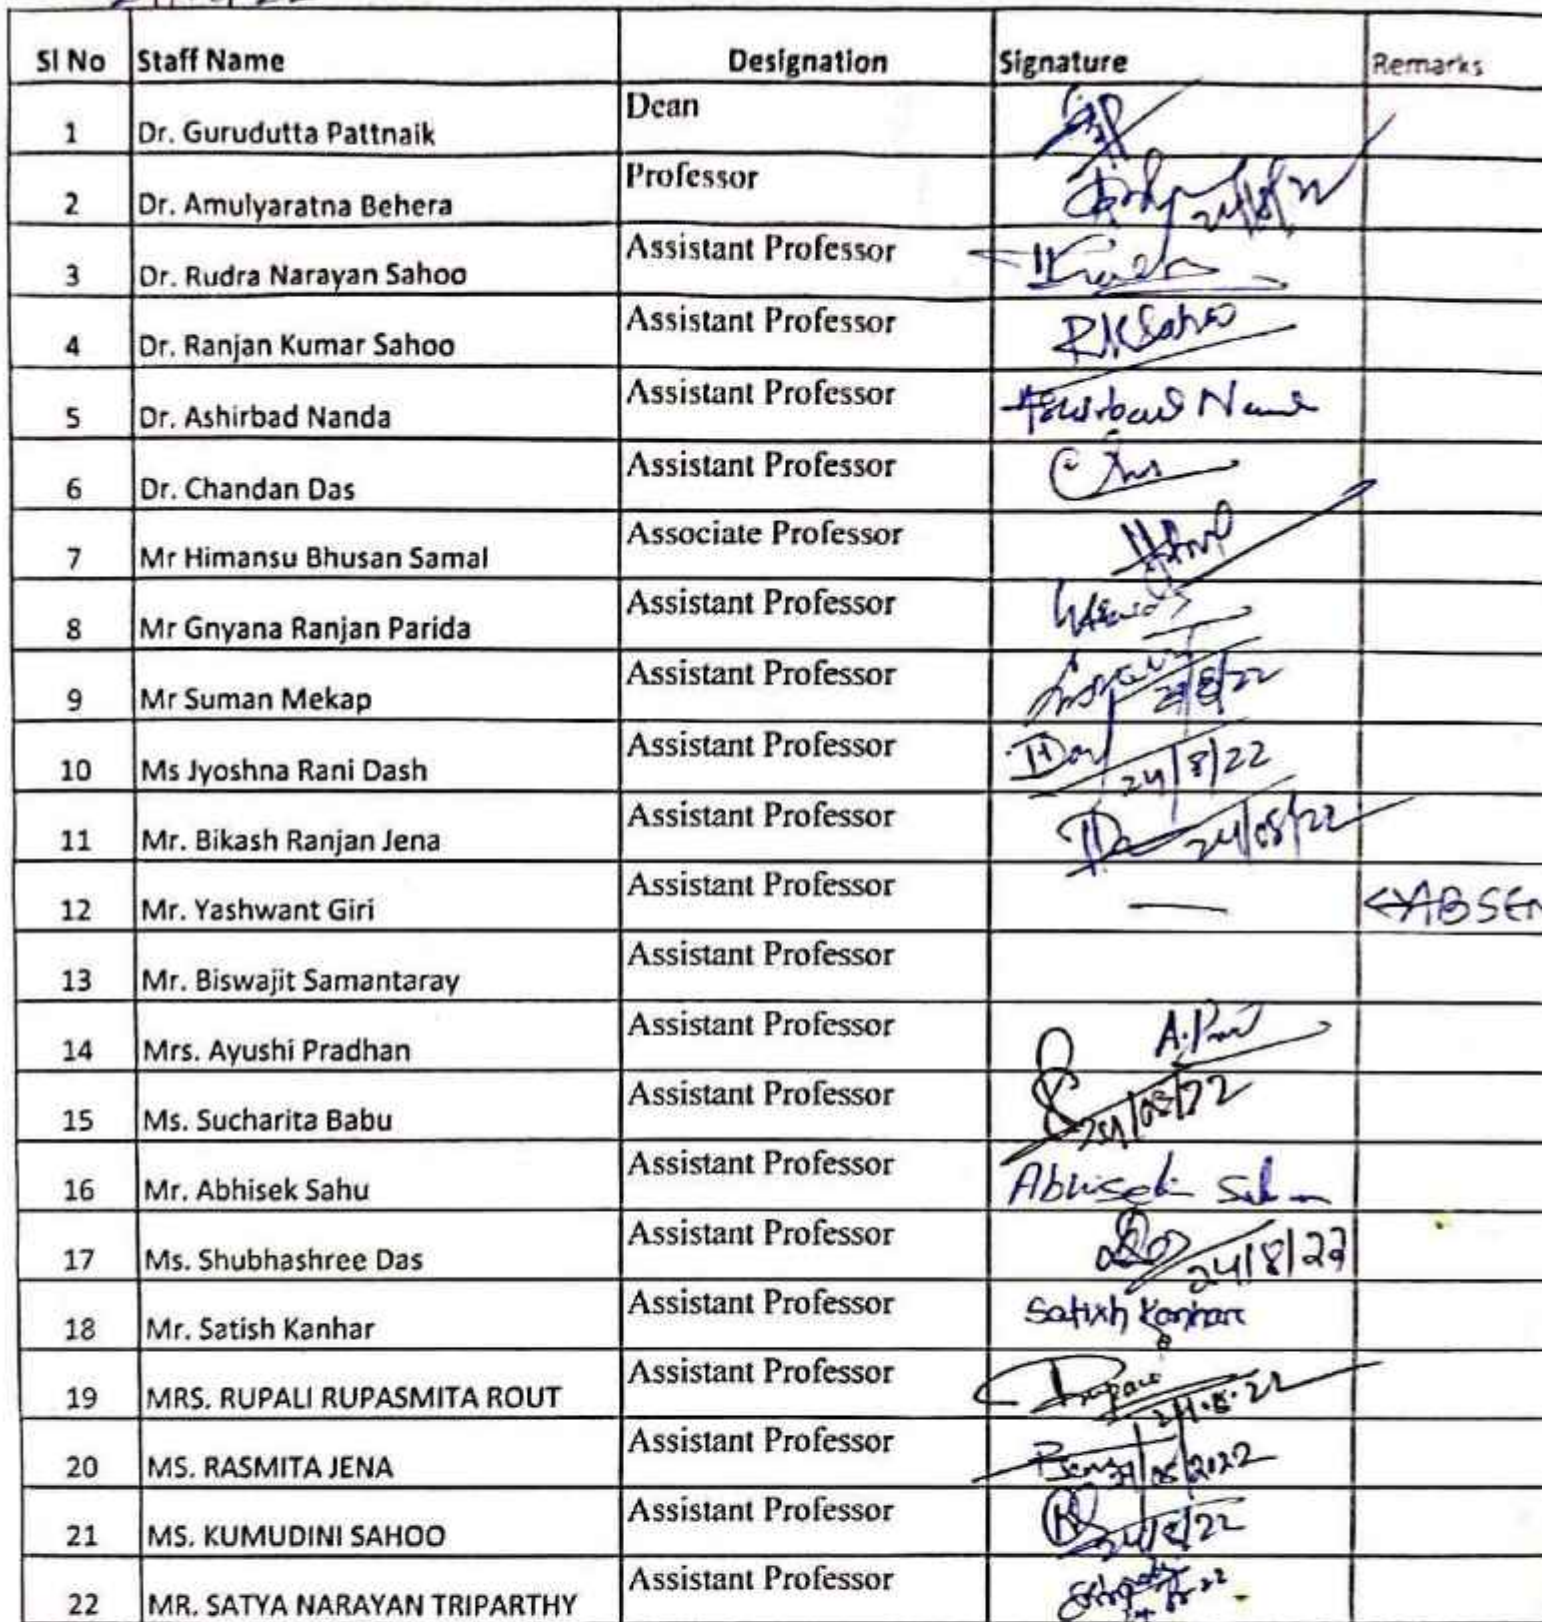 Sl No Staff Name Designation Signature Remarks
1 Dr. Gurudutta Pattnaik Dean
2 Dr. Amulyaratna Behera Professor 24/8/22
3 Dr. Rudra Narayan Sahoo Assistant Professor
4 Dr. Ranjan Kumar Sahoo Assistant Professor RKSahoo
5 Dr. Ashirbad Nanda Assistant Professor Ashirbad Nanda
6 Dr. Chandan Das Assistant Professor
7 Mr Himansu Bhusan Samal Associate Professor
8 Mr Gnyana Ranjan Parida Assistant Professor
9 Mr Suman Mekap Assistant Professor 24/8/22
10 Ms Jyoshna Rani Dash Assistant Professor 24/8/22
11 Mr. Bikash Ranjan Jena Assistant Professor 24/08/22
12 Mr. Yashwant Giri Assistant Professor — ABSEN
13 Mr. Biswajit Samantaray Assistant Professor
14 Mrs. Ayushi Pradhan Assistant Professor
15 Ms. Sucharita Babu Assistant Professor 24/08/22
16 Mr. Abhisek Sahu Assistant Professor Abhisek Sahu
17 Ms. Shubhashree Das Assistant Professor 24/8/22
18 Mr. Satish Kanhar Assistant Professor Satish Kanhar
19 MRS. RUPALI RUPASMITA ROUT Assistant Professor 24.8.22
20 MS. RASMITA JENA Assistant Professor 24/08/2022
21 MS. KUMUDINI SAHOO Assistant Professor 24/8/22
22 MR. SATYA NARAYAN TRIPARTHY Assistant Professor